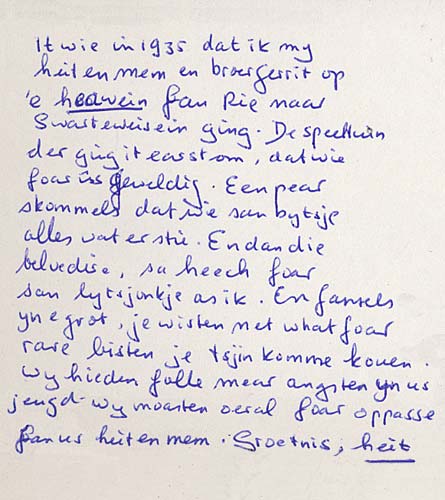 It wie in 1935 dat ik my
heit en mem en broer Gerrit op
'e heawein fan Rie naar
Swarteweisein ging. De speeltuin
der ging it earst om, dat wie
foar ús geweldig. Een pear
skommels dat wie san bytsje
alles wat er stie. En dan die
belvedère, sa heech foar
san lytsjonkje as ik. En fansels
yn e grot, je wisten net what foar
rare bisten je tsjin komme kouen.
Wy hieden folle mear angsten yn us
jeugd. wy moasten oeral foar oppasse
fan us heit en mem. Groetnis, heit